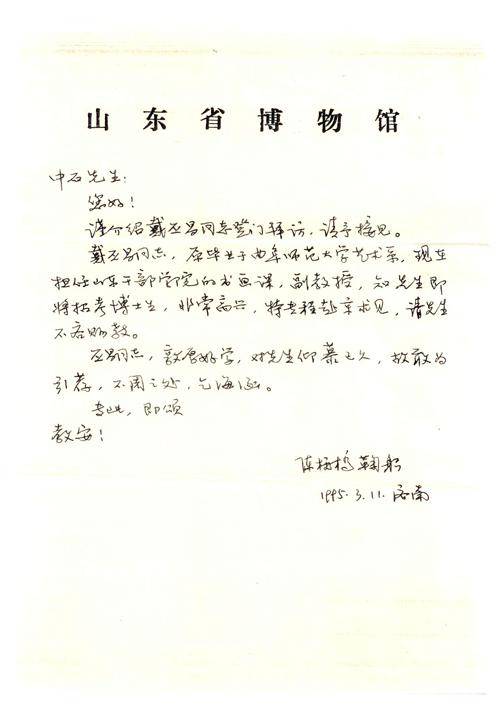 山东省博物馆
中石先生:
您好!
谨介绍戴丕昌同志登门拜访,请予接见。
戴丕昌同志,原毕业于曲阜师范大学艺术系,现在
担任山东干部学院的书画课,副教授,知先生即
将招考博士生,非常高兴,特专程赴京求见,请先生
不吝赐教。
丕昌同志,敦厚好学,对先生仰慕已久,故敢为
引荐,不周之处,乞海涵。
专此,即颂
教安!
陈梗桥 鞠躬
1995.3.11.济南